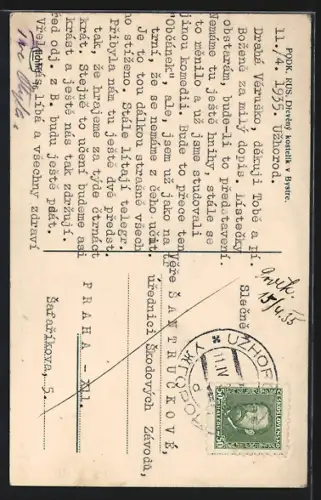 PODK. RUS. Dřevěný kostelík v Bystre.
11./4. 1935. Užhorod.
Drahá Věrusko, děkuji Tobě a Pí.
Boženě za milý dopis. Lístečky
obstarám, bude-li to představení
Nemáme tu ještě knihy, stále se
to měnilo a už jsme studovali
jinou komedii. Bude to přece ten
"Obsánek" ale, jsem už jako na tr
trní, že se nemáme z čeho učit.
Je to tou dálkou strašně všech
no stíženo. Stále lítají telegr.
Přibyla nám tu ještě dvě předst.
tak, že hrajeme za týde čtrnáct
krát. Stejně to učení budeme asi
krást a ještě nás tak zdržují.
Před odj. z B. budu ještě psát.
Vřele Vás líbá a všechny zdraví
Slečně
Věře ŠANTRUČKOVÉ,
úřednici Škodových Závodů,
PRAHA - XII.
Šafaříkova, 5.
15/4.35
UŽHOROD
11.IV
ČESKOSLOVENSKO
50
50